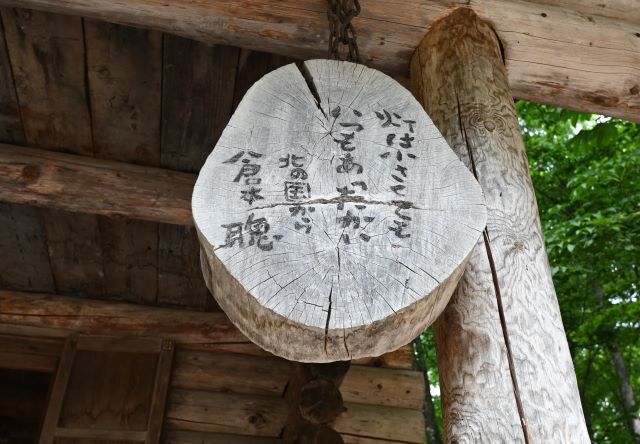 灯は小さくても
いつもあったかい
北の国から
倉本 聰